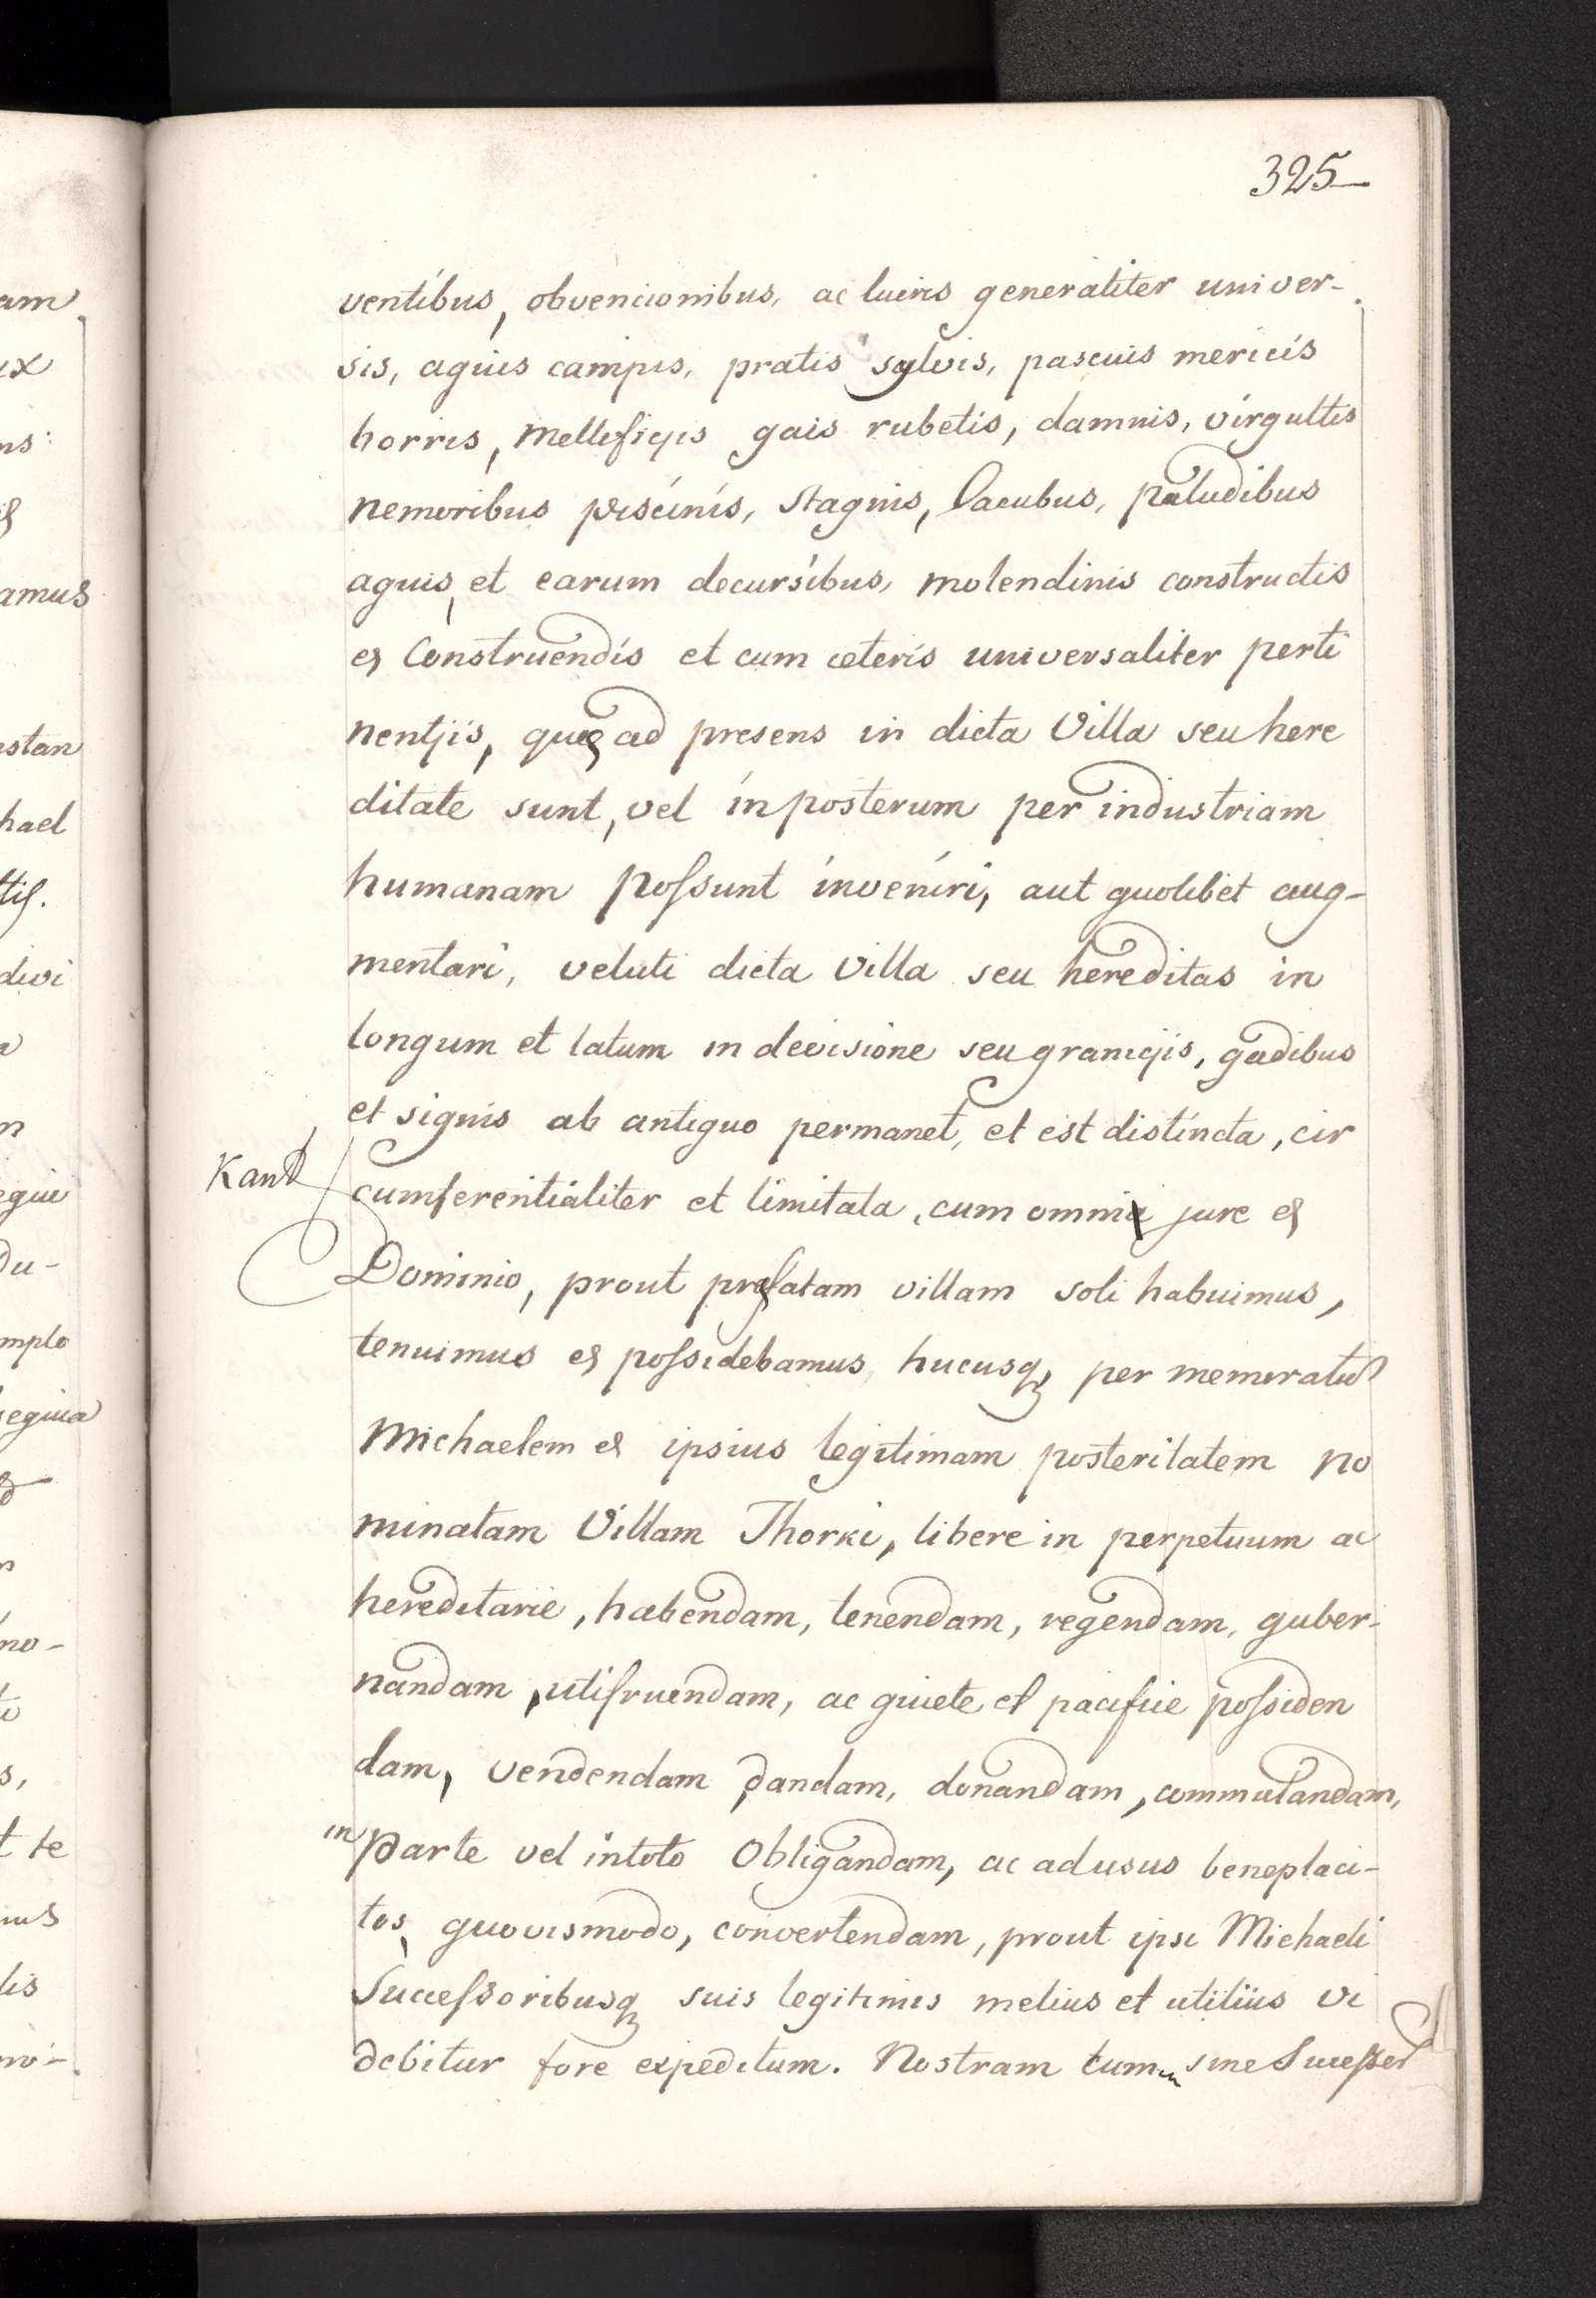 325
ventibus, obvencionibus, ac lucris generaliter univer-
sis, aguis campis, pratis sylvis, pascuis mericis
horris, Mellificijs gais rubetis, damnis, virgultis
nemoribus piscinis, stagnis, Lacubus, paludibus
aguis, et earum decursibus, molendinis constructis
et Construendis et cum ceteris universaliter perti
nentjis, que ad presens in dicta Villa seu here
ditate sunt, vel in posterum per industriam
humanam possunt inveniri, aut guolibet aug-
mentari, veluti dicta Villa seu hereditas in
longum et latum in decisione seu granicjis, gadibus
et signis ab antiguo permanet, et est distincta, cir
Kant
cumferentialiter et limitata, cum omni jure et
Dominio, prout prefatam villam soli habuimus,
tenuimus et possidebamus hucusq, per memoratum
Michaelem et ipsius legitimam posteritatem no
minatam Villam Thorki, libere in perpetuum ac
hereditarie, habendam, tenendam, regendam, guber-
nandam, utifruendam, ac guiete et pacifice possiden
dam, vendendam dandam, donandam, commutandam,
in parte vel in toto Obligandam, ac ad usus beneplaci-
tos, guovismodo, convertendam, prout ipsi Michaeli
Successoribusq suis legitimis melius et utilius vi
debitur fore expeditum. Nostram tum sine
am
ux
ns
amus
stan
hael
tis.
divi
egiu
Du-
mplo
egiua
no-
s,
t te
ius
lis